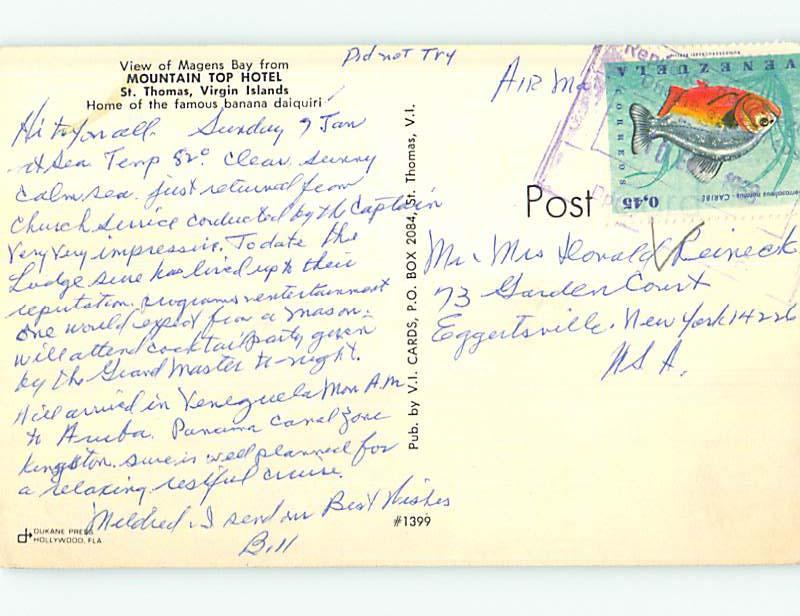 View of Magens Bay from
MOUNTAIN TOP HOTEL
St. Thomas, Virgin Islands
Home of the famous banana daiquiri
Did not Try
Hi to you all. Sunday 9 Jan
at Sea Temp 82° clear, sunny
calm sea. just returned from
church service conducted by the Captain
Very Very impressive. To date the
Lodge sure has lived up to their
reputation. programs & entertainment
one would expect from a mason.
will attend cocktail party given
by the Grand Master to-night.
Will arrived in Venezuela Mon A.M.
to Aruba. Panama Canal Zone
Kingston. sure is well planned for
a relaxing restful cruise.
Mildred & I send our Best Wishes
Bill
DUKANE PRESS
HOLLYWOOD, FLA
#1399
Pub. by V.I. CARDS, P.O. BOX 2084, St. Thomas, V.I.
AIR Ma
VENEZUELA
CORREOS
CARIBE
0,45
Post
Mr & Mrs Donald Reineck
73 Garden Court
Eggertsville. New York 14226
U S A.